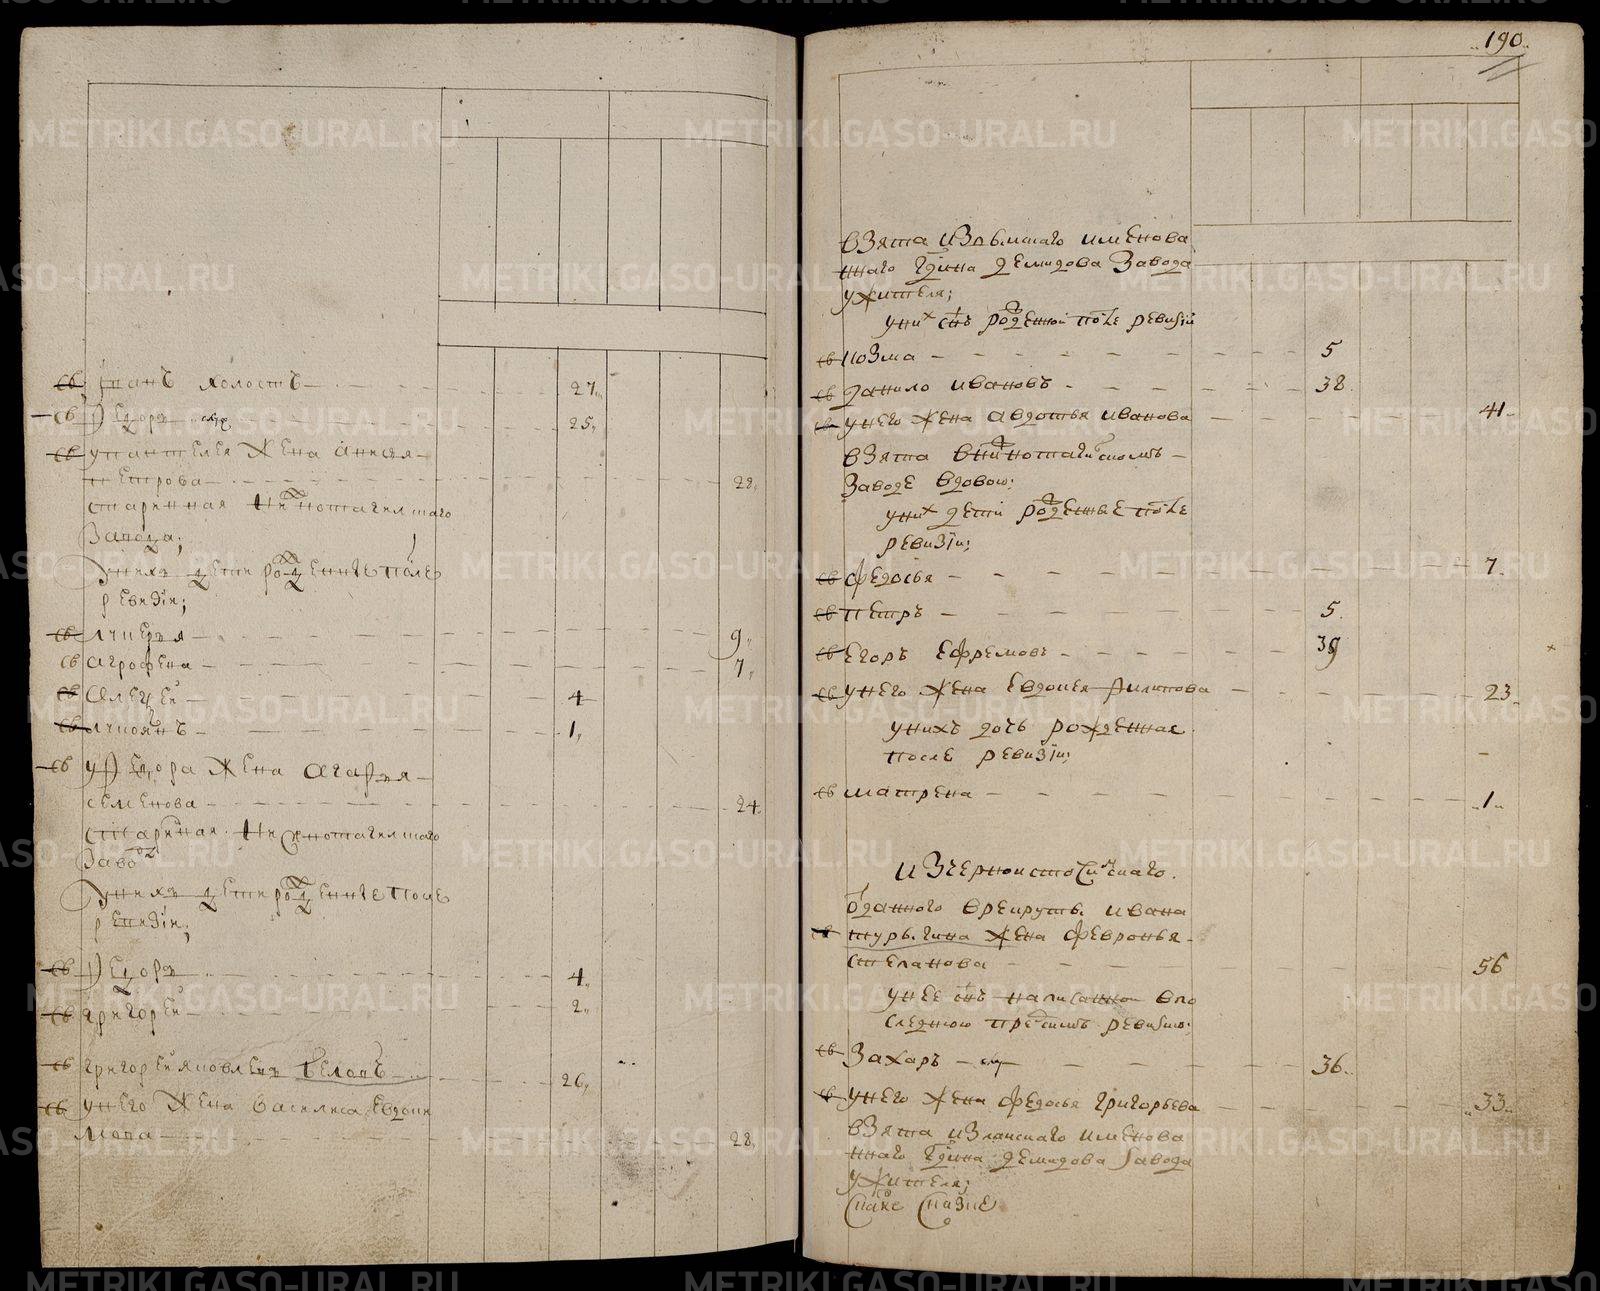 св Иванъ холостъ — 27.
св Федоръ — 25,
св У Пантелея жена Анисья
Петрова — 29,
старинная Нижнотагилского
завода,
У нихъ дети рожденные после
ревизіи;
св Лукерья — 9,
св Агрофена — 7,
св Алексей — 4
св Лукоянъ — 1,
св У Федора жена Агафья
Семенова — 24.
старинная Нижнотагилского
заво
У нихъ дети рожденные после
ревизіи,
св Федоръ — 4.
св Григорей — 2,
св Григорей Яковлевъ Беловъ — 26,
св У него жена Василиса Евдоки
мова — 28,
190
взята из Выйскаго имянова
ннаго Гдина Демидова завода
у жителя;
у них снъ рожденной после ревизіи
св Козма — 5
св Данило Ивановъ — 38.
св У него жена Авдотья Иванова — 41.
взята в Нижнотагилскомъ
заводе вдовою;
у них дети рожденные после
ревизіи;
св Федосья — 7.
св Петръ — 5.
св Егоръ Ефремовъ — 39
св У него жена Евдокея Филипова — 23.
у нихъ дочь рожденная
после ревизіи;
св Матрена — 1.
Из Черноисточенскаго.
отданного в рекруты Ивана
св Турыгина жена Февронья
Степанова — 56
у нее снъ написанной в по
следнюю пред симъ ревизию;
св Захаръ — 36.
св У него жена Федосья Григорьева — 33.
взята из Лайскаго имянова
ннаго Гдина Демидова завода
у жителя;